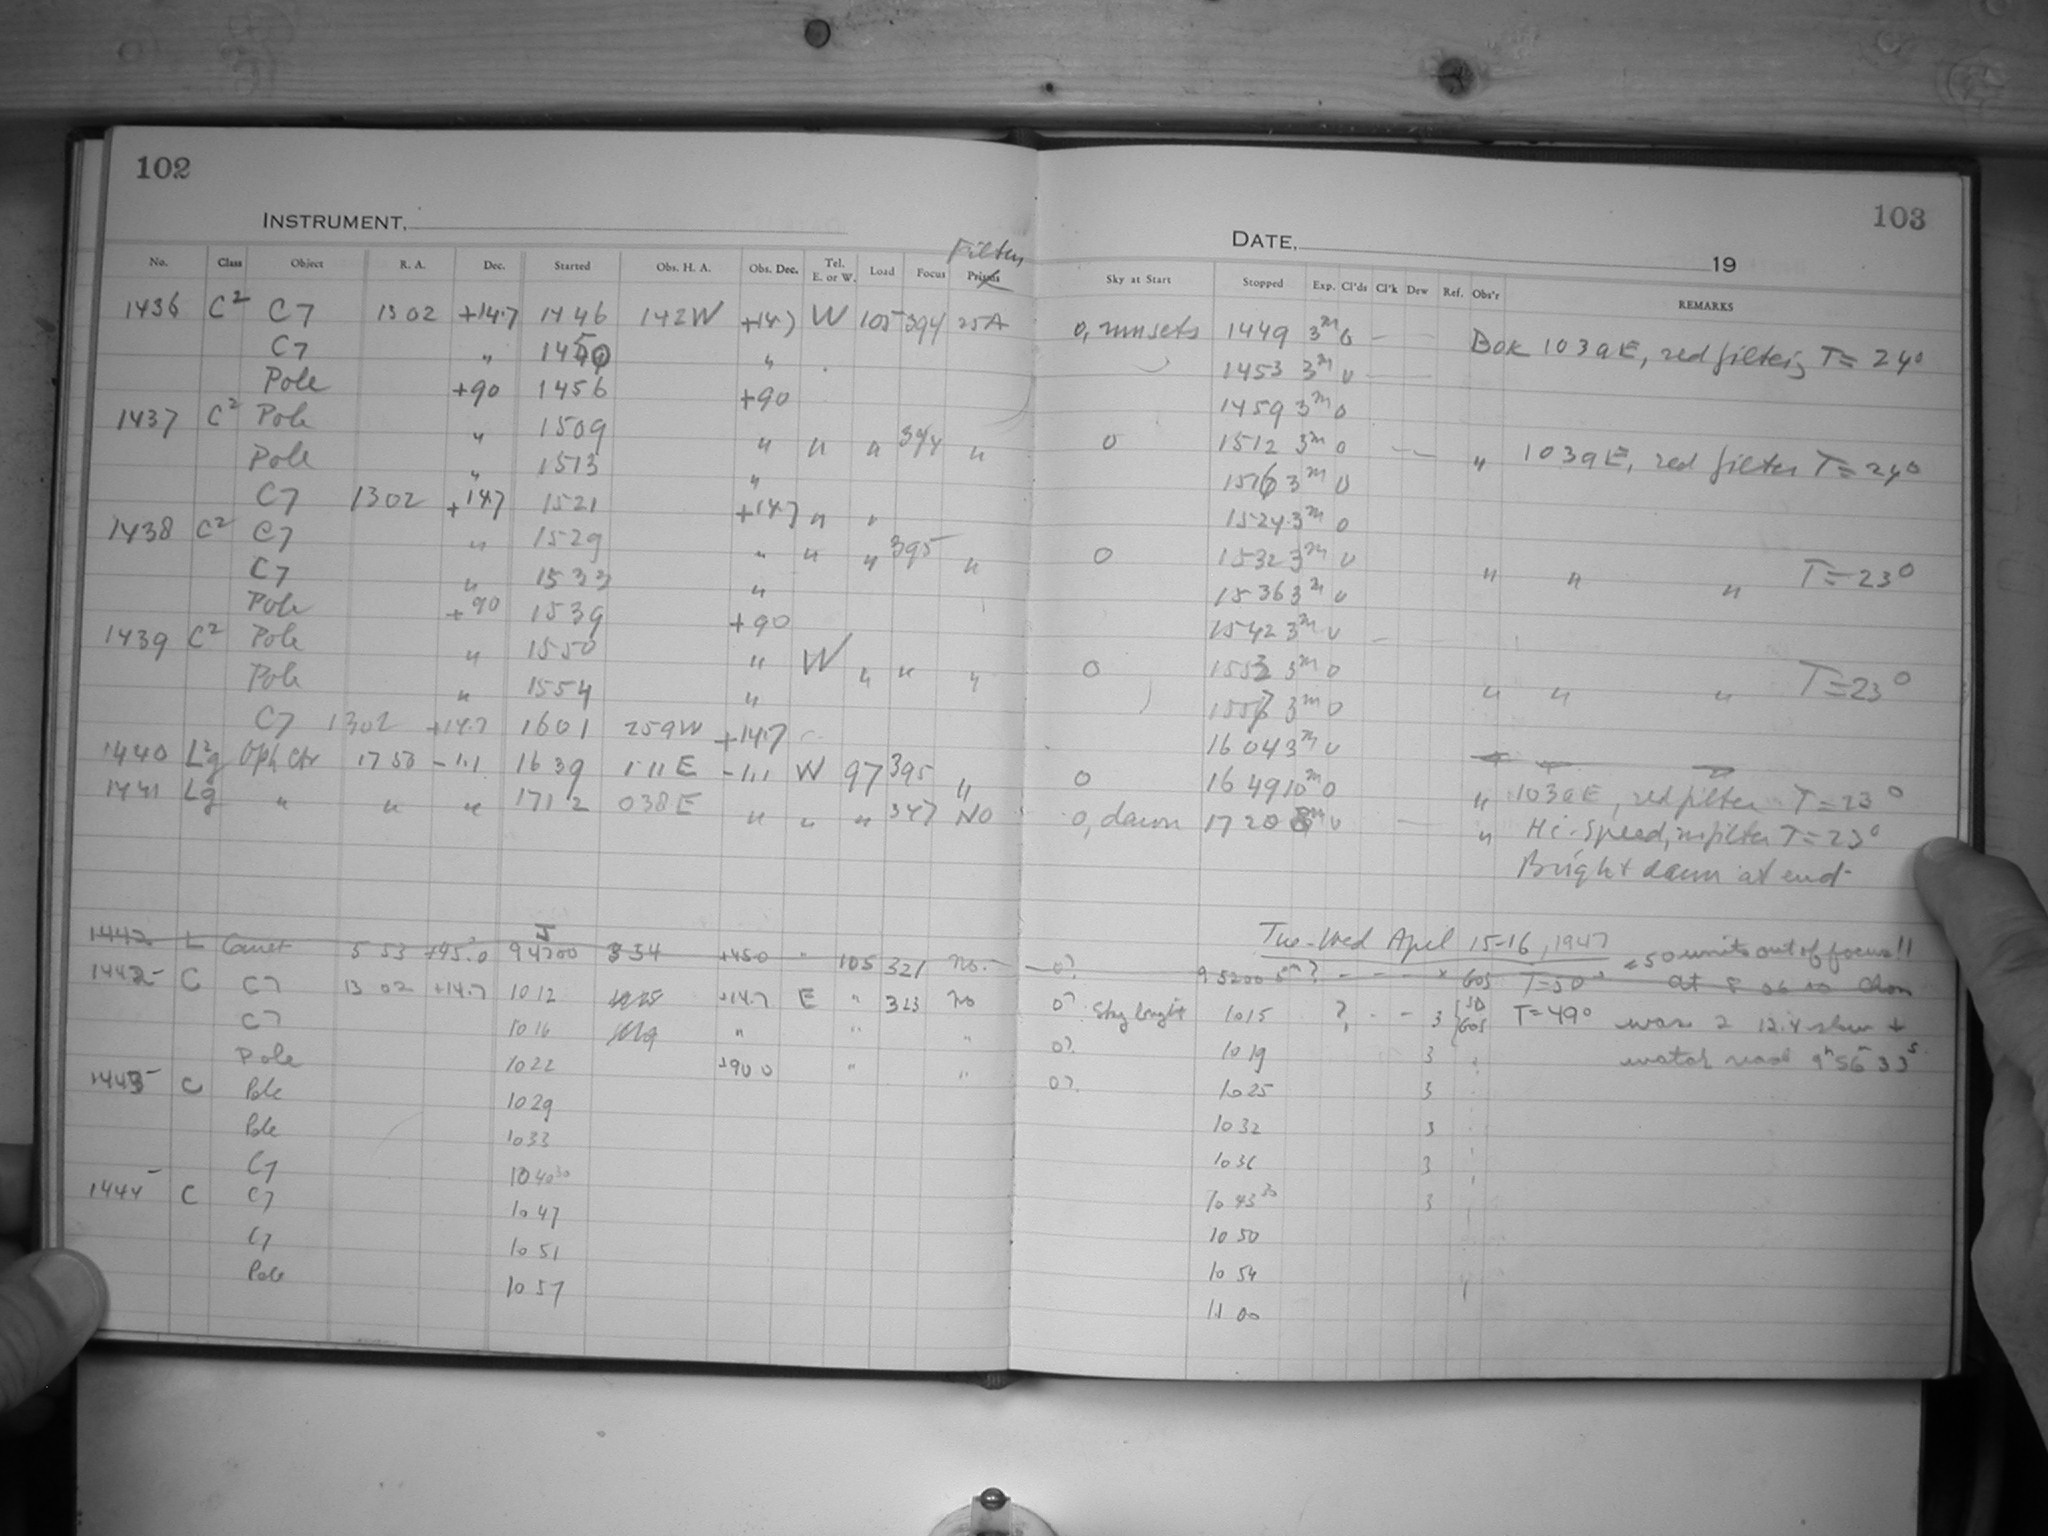 102
103
INSTRUMENT,
DATE, 19
Filter
No. Class Object R. A. Dec. Started Obs. H. A. Obs. Dec. Tel. E. or W. Load Focus Prism Sky at Start Stopped Exp. Cl'ds Cl'k Dew Ref. Obs'r REMARKS
1436 C² C7 1302 +14.7 1446 142W +14.7 W 105 394 25A 0, moon sets 1449 3ᵐ 0 — Bok 103aE, red filter; T = 24°
C7 " 1450 " 1453 3ᵐ 0 —
Pole +90 1456 +90 1459 3ᵐ 0
1437 C² Pole " 1509 " " " 394 " 0 1512 3ᵐ 0 — — " 103aE, red filter T = 24°
Pole " 1513 " 1516 3ᵐ 0
C7 1302 +14.7 1521 +14.7 " " 1524 3ᵐ 0
1438 C² C7 " 1529 " " " 395 " 0 1532 3ᵐ 0 " " " T = 23°
C7 " 1533 " 1536 3ᵐ 0
Pole +90 1539 +90 1542 3ᵐ 0 —
1439 C² Pole " 1550 " W " " " 0 1553 3ᵐ 0 " " " T = 23°
Pole " 1554 " 1557 3ᵐ 0
C7 1302 +14.7 1601 259W +14.7 1604 3ᵐ 0
1440 L²g Oph Ctr 1753 -1.1 1639 111E -1.1 W 97 395 " 0 1649 10ᵐ 0 " 103aE, red filter T = 23°
1441 Lg " " " 1712 038E " " " 347 NO 0, dawn 1720 8ᵐ 0 — " Hi-Speed, no filter T = 23°
Bright dawn at end
Tue-Wed April 15-16, 1947
1442 L Comet 5 53 +45.0 94700 3 54 +450 " 105 321 no. 0? 95200 5ᵐ? - - - × GOS T=50° = 50 units out of focus!!
1442 C C7 13 02 +14.7 1012 +14.7 E " 323 no 0? Sky bright 1015 ? - - 3 GOS T = 49° at 8
C7 1016 " " " 0? 1019 3 " was 2 12.4 slow +
Pole 1022 +900 " " 0? 1025 3 watch read 9ʰ56ᵐ33ˢ
1443 C Pole 1029 1032 3
Pole 1033 1036 3
C7 1040³⁰ 1043³⁰ 3
1444 C C7 1047 1050
C7 1051 1054
Pole 1057 1100